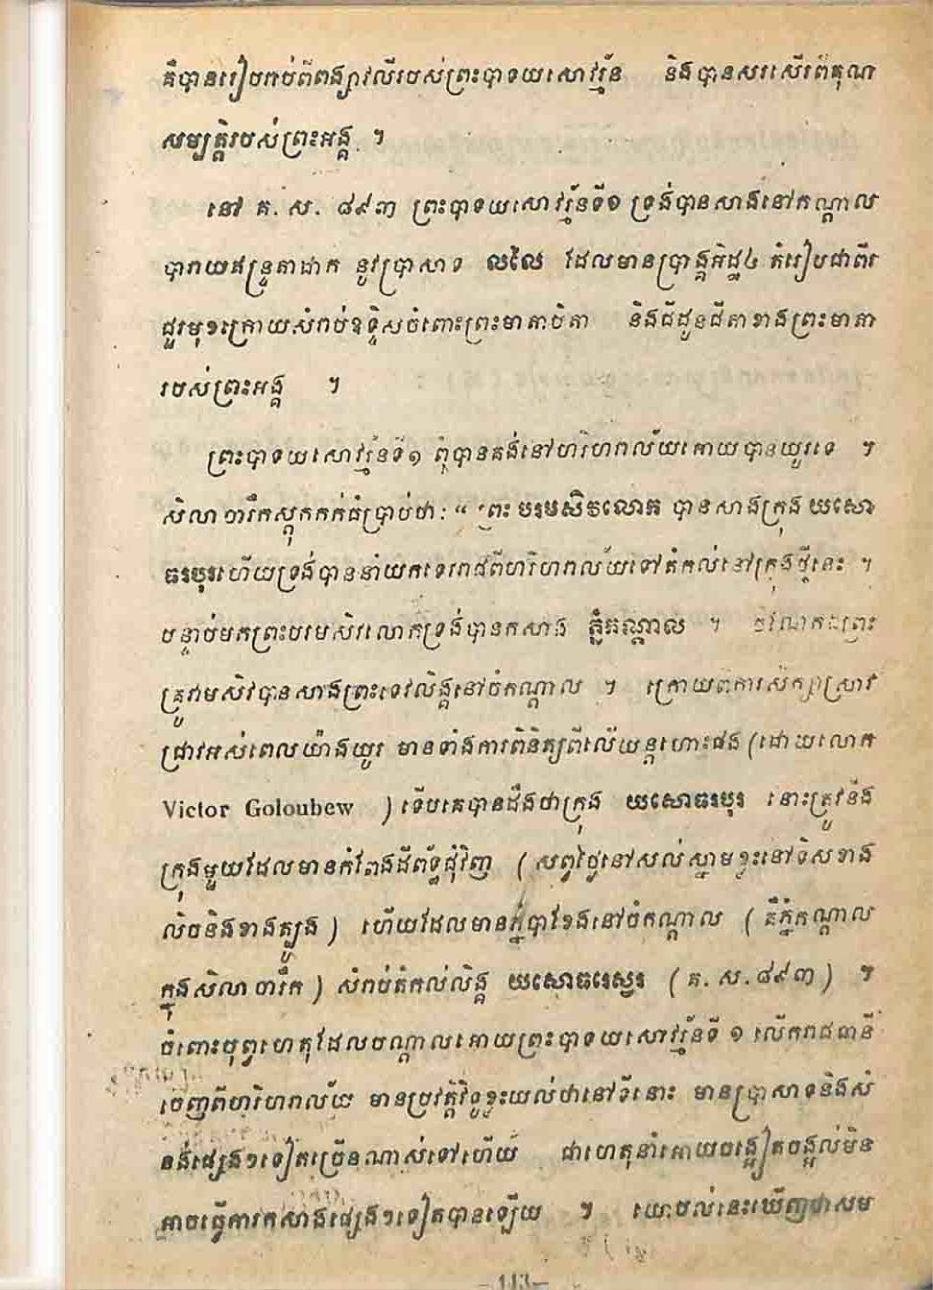 គឺបានរៀបរាប់ពីពង្សាវលីរបស់ព្រះបាទយសោវរ្ម័ន និងបានសរសើរពីគុណ
សម្បត្តិរបស់ព្រះអង្គ ។
នៅ គ. ស. ៨៩៣ ព្រះបាទយសោវរ្ម័នទី១ ទ្រង់បានសាងនៅកណ្ដាល
បារាយឥន្ទ្រតាដាក នូវប្រាសាទ លលៃ ដែលមានប្រាង្គឥដ្ឋ៤ តំរៀបជាពីរ
ជួរមុខក្រោយសំរាប់ឧទ្ទិសចំពោះព្រះមាតាបិតា និងជីដូនជីតាខាងព្រះមាតា
របស់ព្រះអង្គ ។
ព្រះបាទយសោវរ្ម័នទី១ ពុំបានគង់នៅហរិហរាល័យអោយបានយូរទេ ។
សិលាចារឹកស្ដុកកក់ធំប្រាប់ថា : “ ព្រះ បរមសិវលោក បានសាងក្រុង យសោ
ធរបុរហើយទ្រង់បាននាំយកទេវរាជពីហរិហរាល័យទៅតំកល់នៅក្រុងថ្មីនេះ ។
បន្ទាប់មកព្រះបរមសិវលោកទ្រង់បានកសាង ភ្នំកណ្ដាល ។ ចំណែកឯព្រះ
គ្រូវាមសិវបានសាងព្រះទេវលិង្គនៅចំកណ្ដាល ។ ក្រោយពីការសិក្សាស្រាវ
ជ្រាវអស់ពេលយ៉ាងយូរ មានទាំងការពិនិត្យពីលើយន្តហោះផង (ដោយលោក
Victor Goloubew ) ទើបគេបានដឹងថាក្រុង យសោធរបុរ នោះត្រូវនឹង
ក្រុងមួយដែលមានកំពែងដីព័ទ្ធជុំវិញ ( សព្វថ្ងៃនៅសល់ស្នាមខ្លះនៅទិសខាង
លិចនិងខាងត្បូង ) ហើយដែលមានភ្នំបាខែងនៅចំកណ្ដាល ( គឺភ្នំកណ្ដាល
ក្នុងសិលាចារឹក ) សំរាប់តំកល់លិង្គ យសោធរេស្វរ ( គ. ស. ៨៩៣ ) ។
ចំពោះបុព្វហេតុដែលបណ្ដាលអោយព្រះបាទយសោវរ្ម័នទី ១ លើករាជធានី
ចេញពីហរិហរាល័យ មានប្រវត្តិវិទូខ្លះយល់ថានៅទីនោះ មានប្រាសាទនិងសំ
នង់ផ្សេងៗទៀតច្រើនណាស់ទៅហើយ ជាហេតុនាំអោយចង្អៀតចង្អល់មិន
អាចធ្វើការកសាងផ្សេងៗទៀតបានឡើយ ។ យោបល់នេះឃើញថាសម
–113–